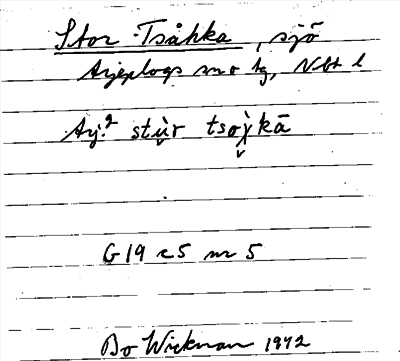 Stor-Tsåhka, sjö
Arjeplogs sn o tg, Nbt l
Arj.² stu̬̇r tsoχ̬̀kā
G19 c5 nr 5
Bo Wickman 1942